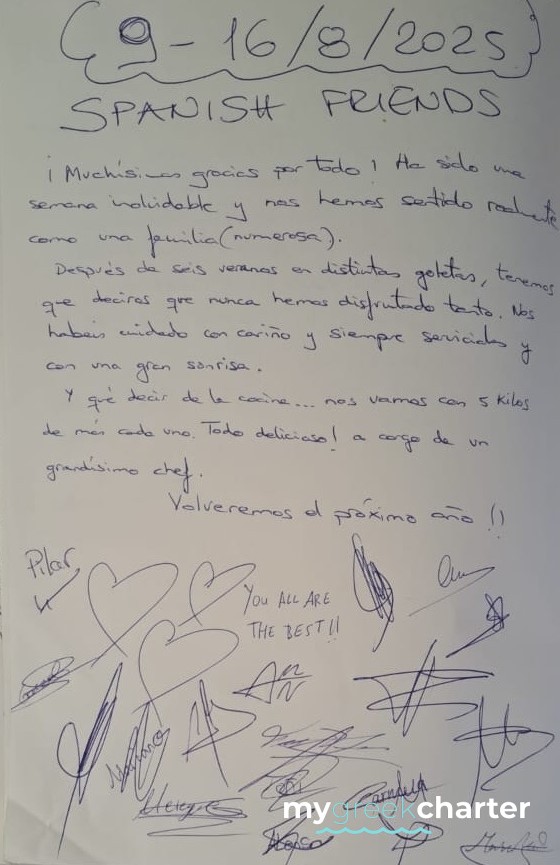 9 - 16/8/2025
SPANISH FRIENDS
¡Muchísimas gracias por todo! Ha sido una
semana inolvidable y nos hemos sentido realmente
como una familia (numerosa).
Después de seis veranos en distintas goletas, tenemos
que deciros que nunca hemos disfrutado tanto. Nos
habeis cuidado con cariño y siempre serviciales y
con una gran sonrisa.
Y qué decir de la cocina... nos vamos con 5 kilos
de más cada uno. Todo delicioso! a cargo de un
grandísimo chef.
Volveremos el próximo año !!
Pilar
YOU ALL ARE
THE BEST!!
mygreekcharter